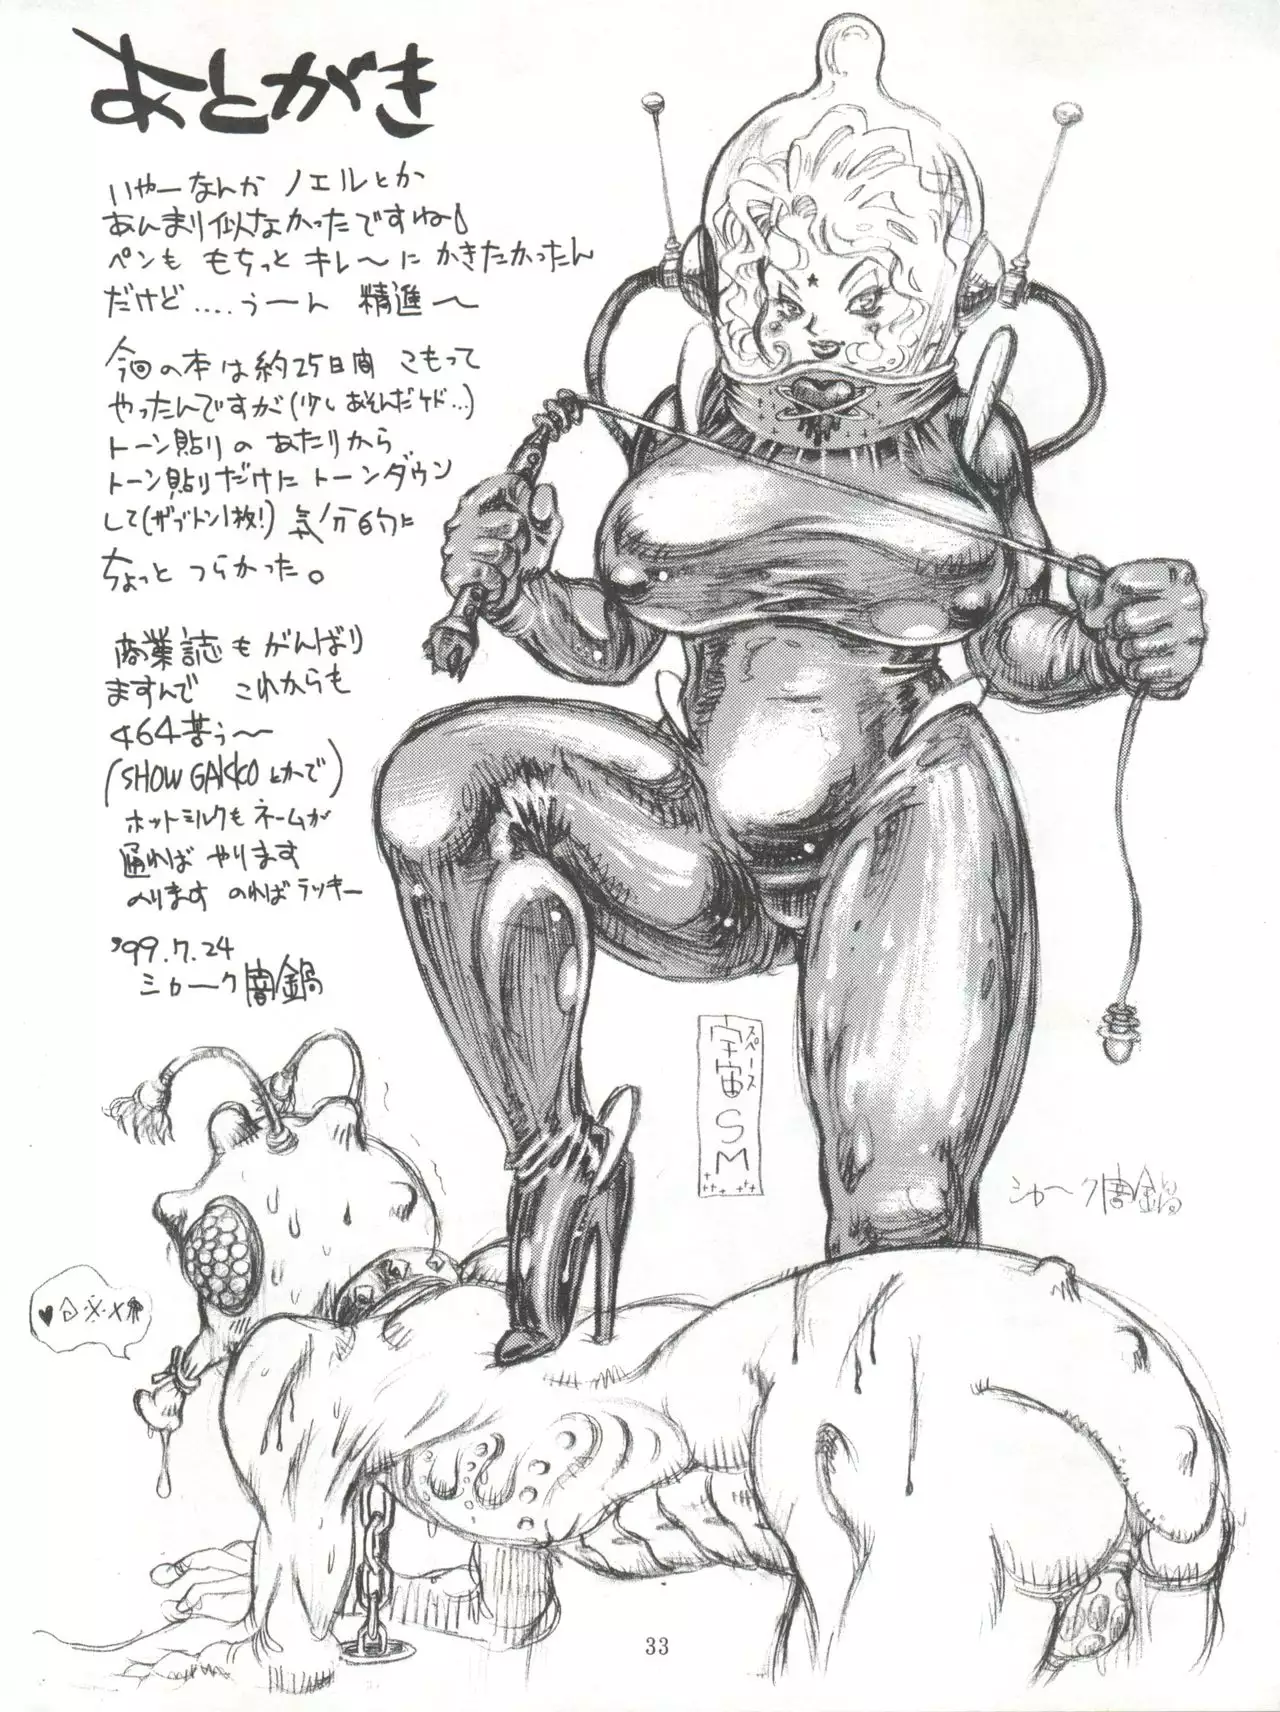 あとがき
いやーなんか ノエルとか
あんまり似なかったですね
ペンも もちっと キレ〜に かきたかったん
だけど....うーん 精進〜
今回の本は約25日間 こもって
やったんですが(少しあそんだケド...)
トーン貼りの あたりから
トーン貼りだけに トーンダウン
して(ザブトン1枚!) 気分的に
ちょっと つらかった。
商業誌も がんばり
ますんで これからも
4649う〜
(SHOW GAKKOとかで)
ホットミルクも ネームが
通れば やります
のります のればラッキー
'99.7.24
シャーク闇鍋
宇宙SM
スペース
シャーク闇鍋
33